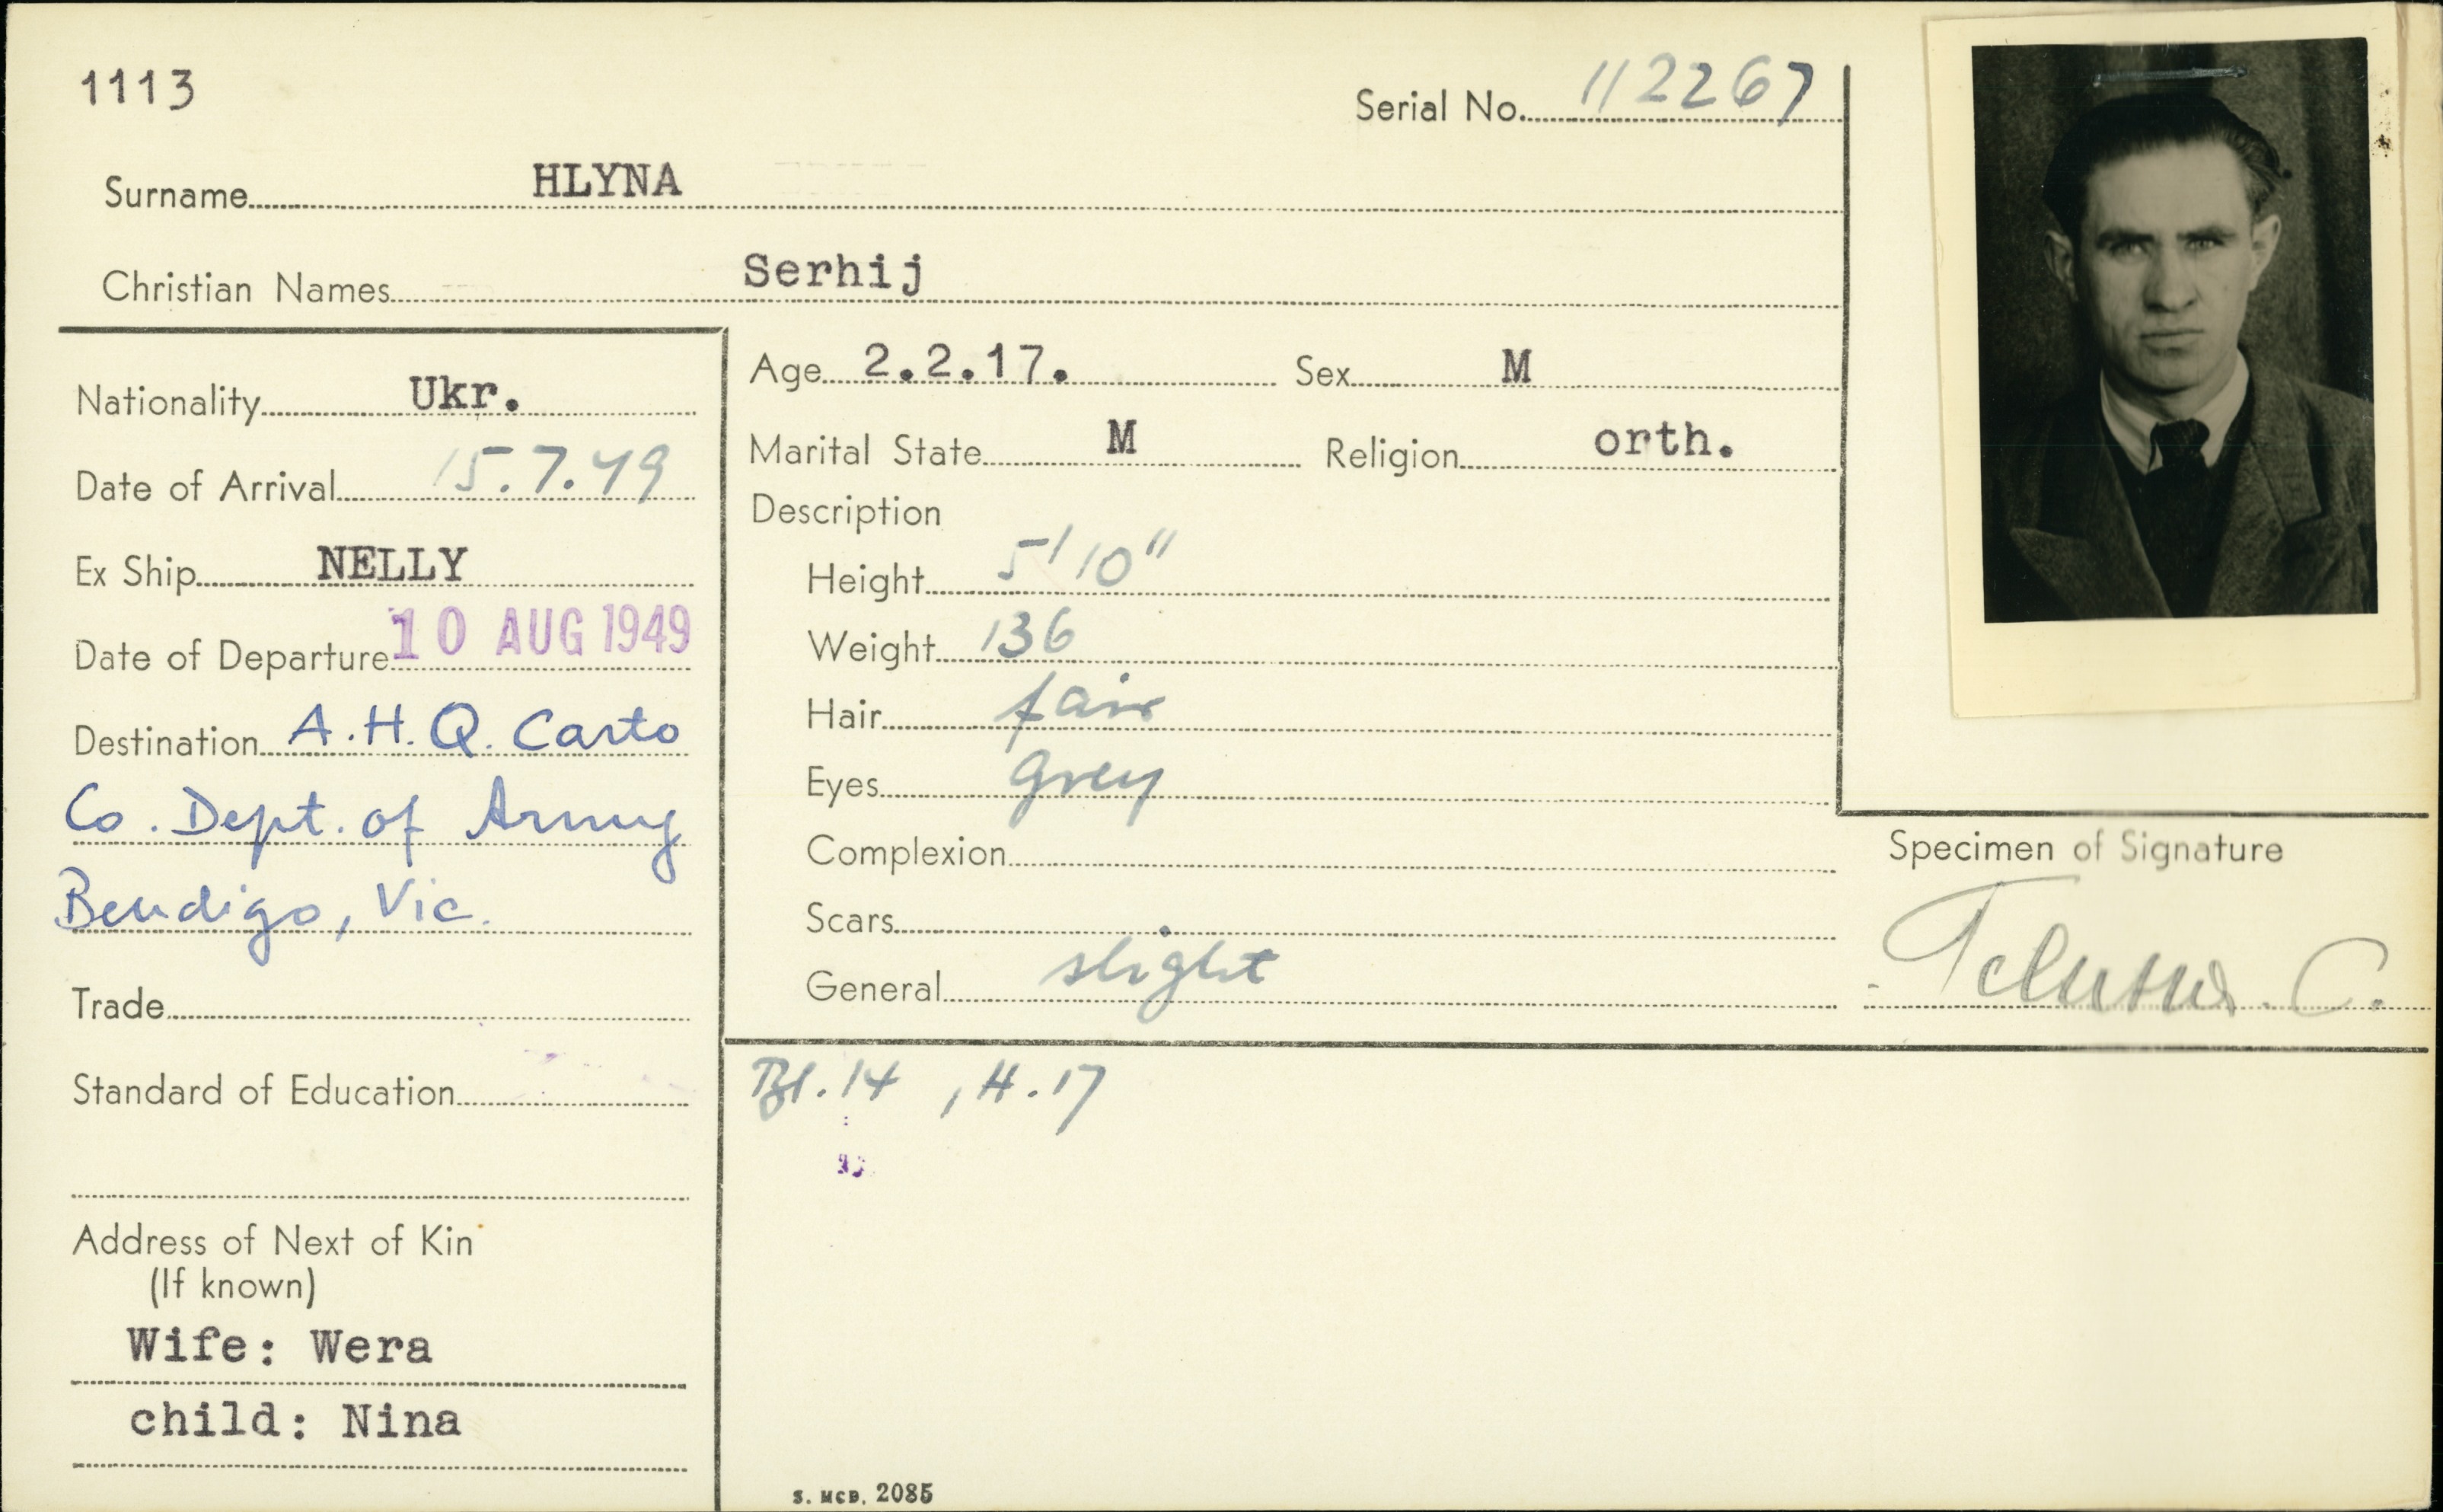 1113
Serial No. 112267
Surname HLYNA
Christian Names Serhij
Nationality Ukr.
Date of Arrival 15.7.49
Ex Ship NELLY
Date of Departure 10 AUG 1949
Destination A.H.Q. Carto
Co. Dept. of Army
Bendigo, Vic.
Trade
Standard of Education
Address of Next of Kin
(If known)
Wife: Wera
child: Nina
Age 2.2.17. Sex M
Marital State M Religion orth.
Description
Height 5'10"
Weight 136
Hair fair
Eyes grey
Complexion
Scars
General slight
Specimen of Signature
Bl.14 , H.17
S. McD. 2085